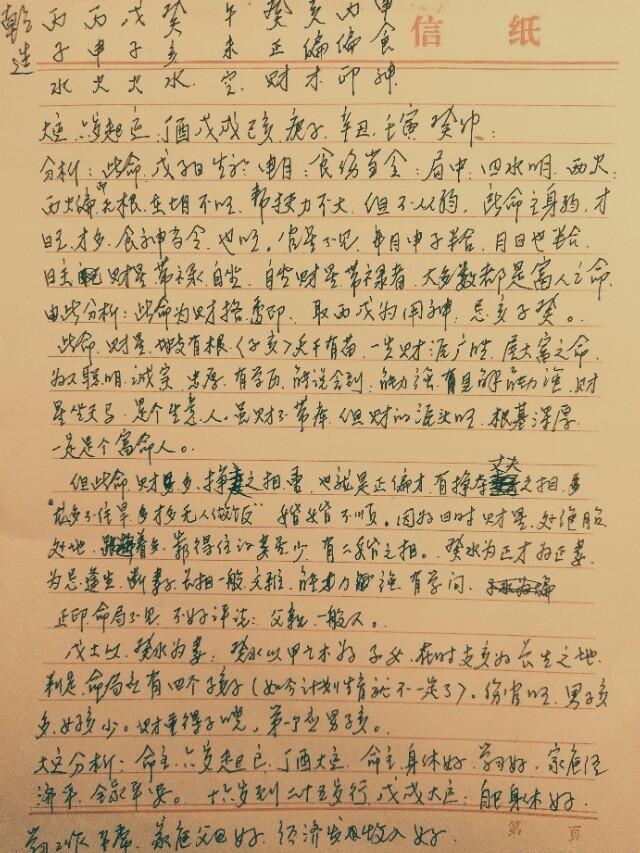 乾 丙 丙 戊 癸 午 癸 亥 丙 申
造 子 申 子 亥 未 正 偏 偏 食
信纸
水 火 火 水 空 财 才 印 神
大运 六岁起运 丁酉 戊戌 己亥 庚子 辛丑 壬寅 癸卯：
分析：此命 戊子日生于 申月：食伤当令：局中 四水明 两火
丙火偏印无根 坐培不旺 帮扶力不大 但不从弱。此命主身弱，才
旺，才多，食神当令，也旺。官星不见，年月申子半合，月日也半合，
日主 财星带禄自坐 自坐财星带禄者 大多数都是富人之命
由此分析：此命为财格 印 取丙戊为用神，忌亥子癸。
此命 财星地支有根（子亥）天干有苗，一生财源广胜，屋大富之命，
为人聪明，诚实，忠厚，有学历，能说会到，能力强，有见解能力强，财
星坐天马，是个生意人。虽财不带库，但财的源头旺，根基深厚
一定是个富命人。
但此命 财星多 挣妻之相 也就是正偏才 有挣夺丈夫之相
“龙多不住旱，多才多无人做饭” 婚姻不顺。因为四时财星 处绝胎
处地，靠得住的妻星少，有二婚之相。癸水为正才为正妻
为忌逢生，断妻子长相一般，能力强，有学问，
正印命局不见 不好评说：父亲一般人。
戊土以 癸水为妻：癸水以甲乙木为子女，在时支亥为长生之地
判定命局应有四个孩子（如今计划生育就不一定了）。伤官旺，男孩
多，女孩少。财重得子晚，第一个应男孩。
大运分析：命主六岁起运 丁酉大运 命主身体好 学习好 家庭经
济平 全家平安。 十六岁到二十五岁行戊戌大运：自己身体好
学习工作平常 家庭父母好 经济发用收入好
第 页